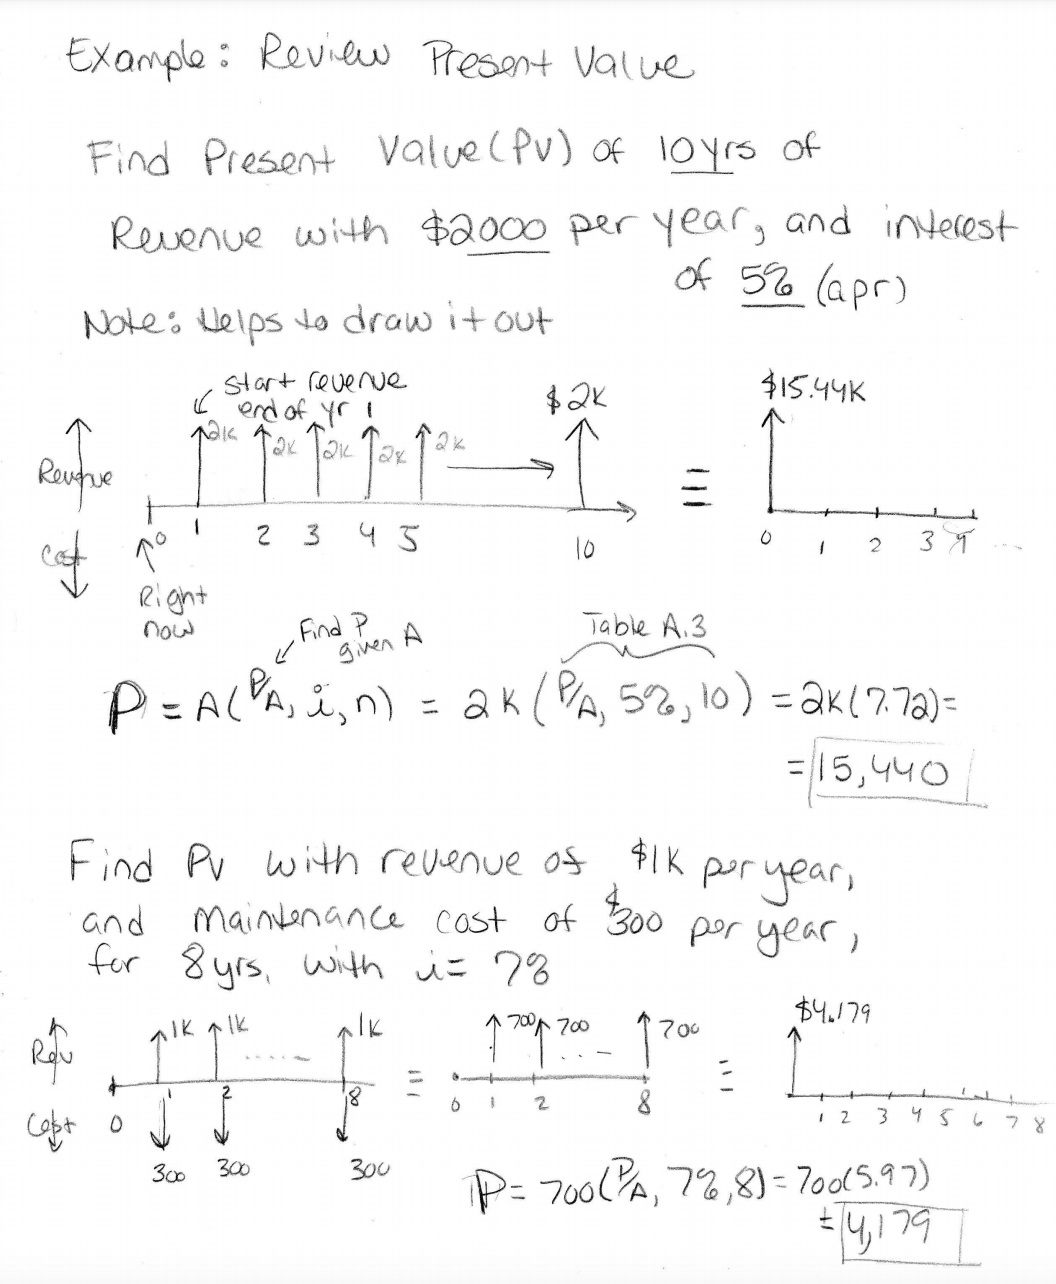 Example: Review Present Value
Find Present Value (PV) of 10 yrs of
Revenue with $2000 per year, and interest
of 5% (apr)
Note: Helps to draw it out
start revenue
end of yr 1
$2K
$15.44K
2K 2K 2K 2K 2K
Revenue
Cost
0 1 2 3 4 5 10
≡
0 1 2 3 4 ...
Right
now
Find P
given A
Table A.3
P = A(P/A, i, n) = 2K(P/A, 5%, 10) = 2K(7.72) =
= 15,440
Find PV with revenue of $1K per year,
and maintenance cost of $300 per year,
for 8 yrs, with i = 7%
Rev
Cost
1K 1K ..... 1K
0 1 2 8
300 300 300
≡
700 700 ... 700
0 1 2 8
≡
$4.179
1 2 3 4 5 6 7 8
P = 700(P/A, 7%, 8) = 700(5.97)
= 4,179